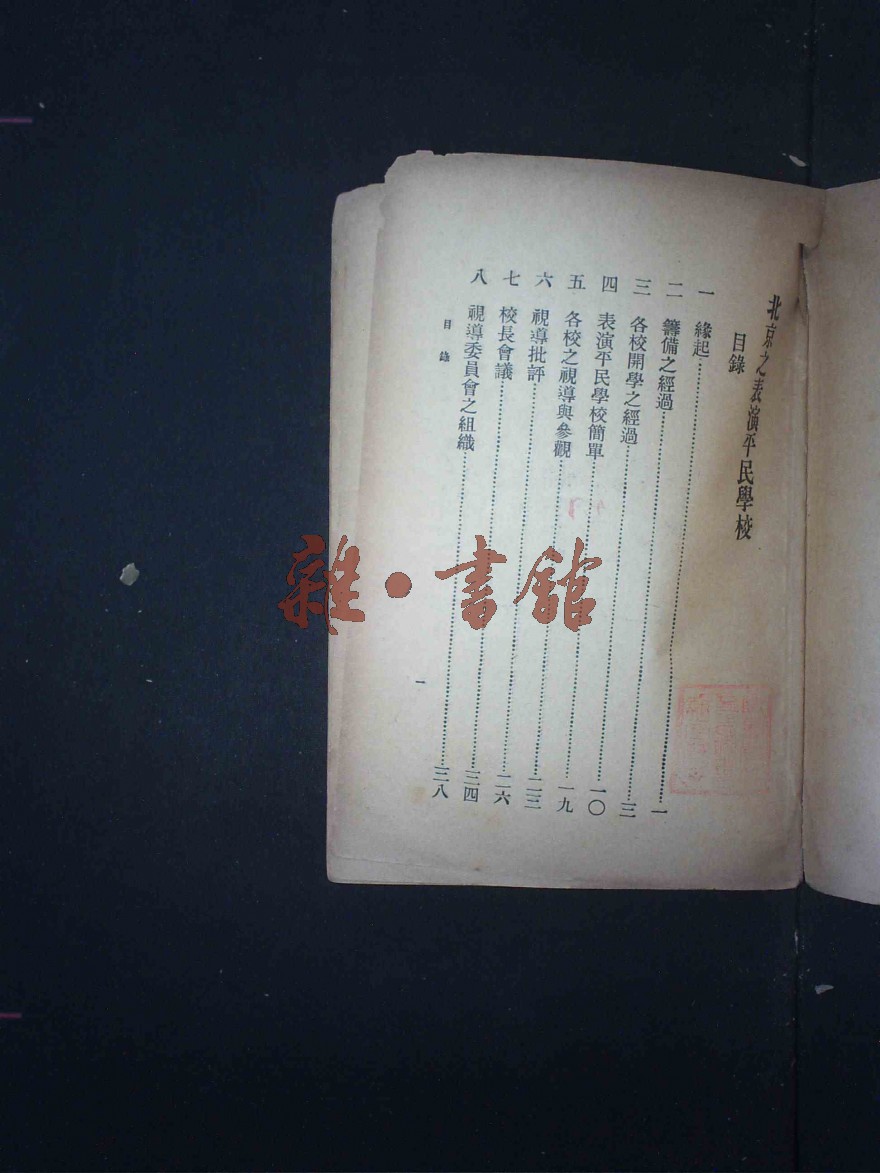 北京之表演平民學校
目錄
一 緣起……一
二 籌備之經過……三
三 各校開學之經過……一〇
四 表演平民學校簡單……一九
五 各校之視導與參觀……二三
六 視導批評……二六
七 校長會議……三四
八 視導委員會之組織……三八
目錄
一
雜·書館